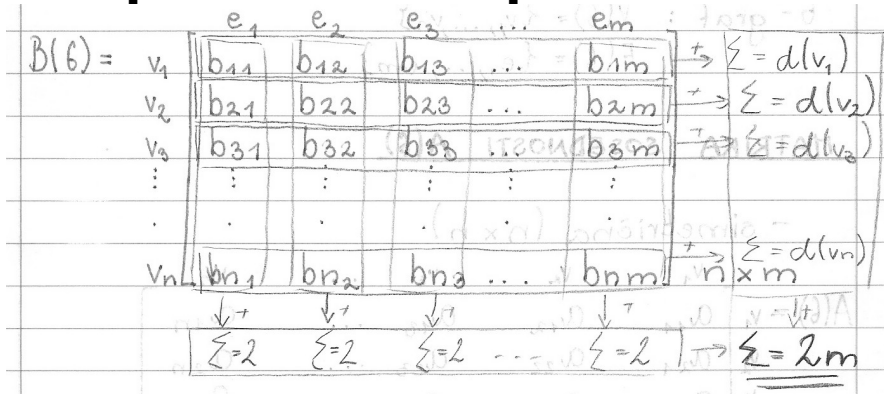 e1 e2 e3 ... em
B(G) = v1 b11 b12 b13 ... b1m + → Σ = d(v1)
v2 b21 b22 b23 ... b2m + → Σ = d(v2)
v3 b31 b32 b33 ... b3m + → Σ = d(v3)
⋮ ⋮ ⋮ ⋮ ⋮ ⋮
. . . . . .
+ → Σ = d(vn)
vn bn1 bn2 bn3 ... bnm n × m
↓+ ↓+ ↓+ ↓+ ↓+
Σ=2 Σ=2 Σ=2 --- Σ=2 → Σ = 2m